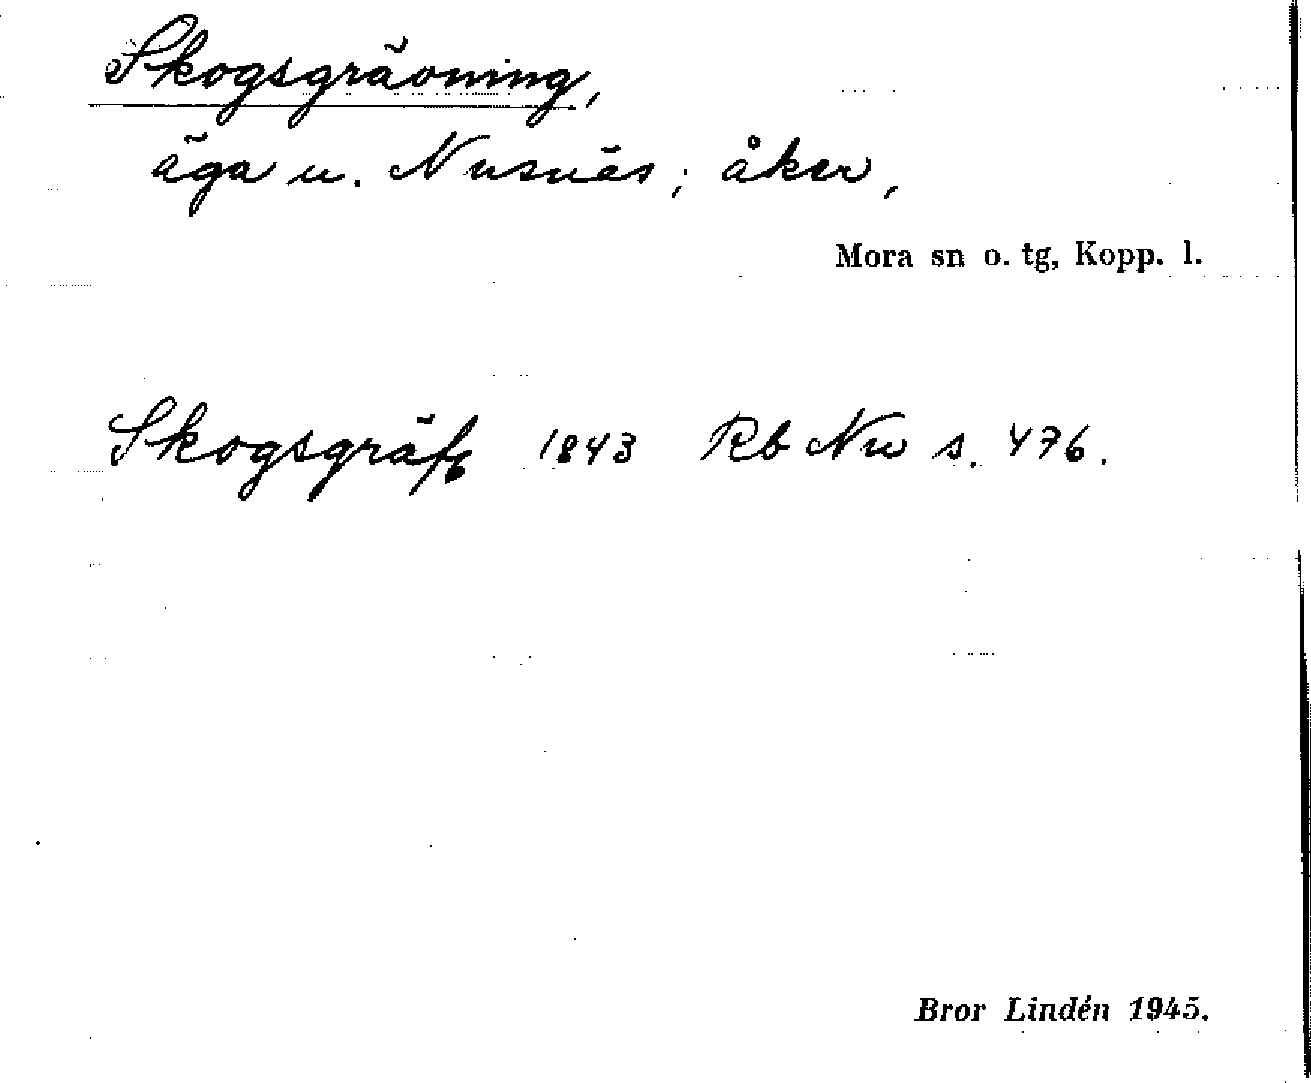 Skogsgrävning,
äga u. Nusnäs; åker,
Mora sn o. tg, Kopp. l.
Skogsgräfn 1843 Rb Nu s. 476.
Bror Lindén 1945.